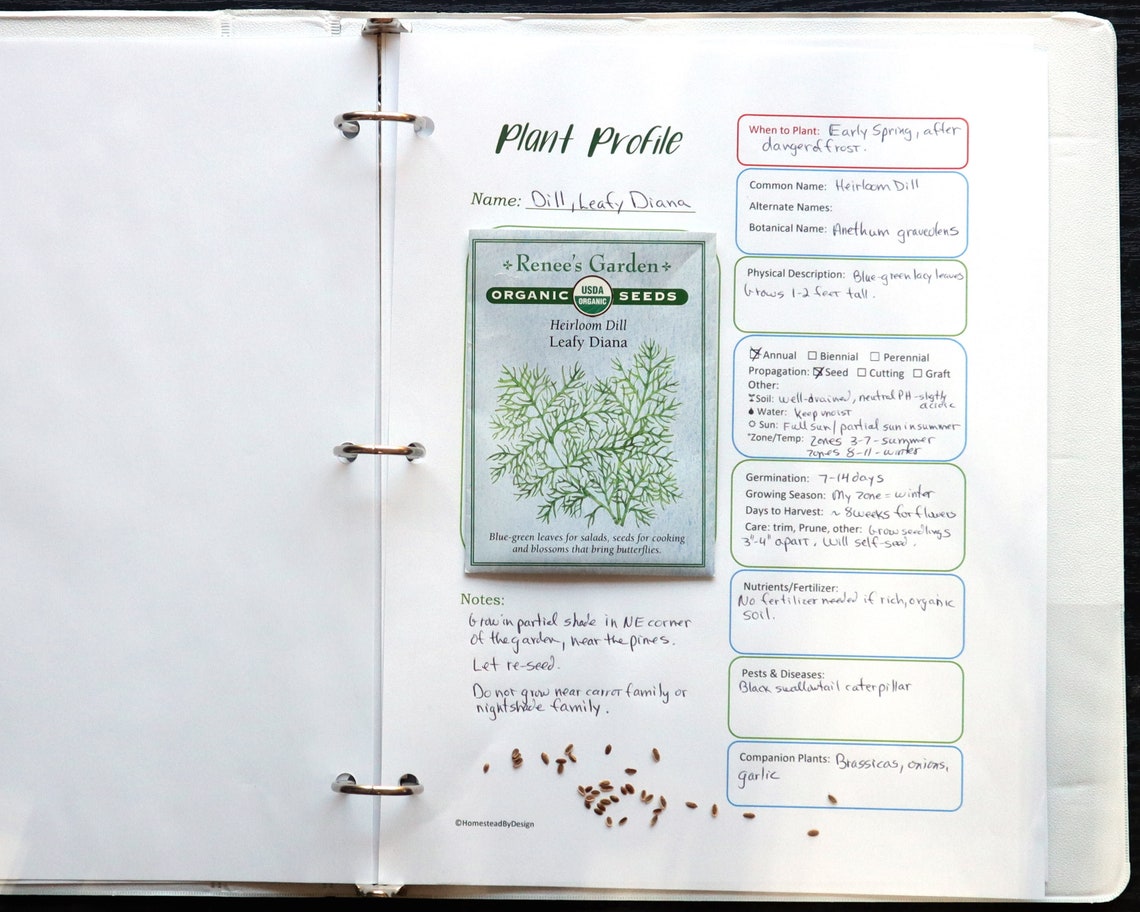 Plant Profile
Name: Dill, Leafy Diana
Renee's Garden
ORGANIC USDA ORGANIC SEEDS
Heirloom Dill
Leafy Diana
Blue-green leaves for salads, seeds for cooking
and blossoms that bring butterflies.
Notes:
Grow in partial shade in NE corner
of the garden, near the pines.
Let re-seed.
Do not grow near carrot family or
nightshade family.
©HomesteadByDesign
When to Plant: Early Spring, after
danger of frost.
Common Name: Heirloom Dill
Alternate Names:
Botanical Name: Anethum graveolens
Physical Description: Blue-green lacy leaves
Grows 1-2 feet tall.
Annual Biennial Perennial
Propagation: Seed Cutting Graft
Other:
Soil: well-drained, neutral PH-sligtly
acidic
Water: Keep moist
Sun: Full sun/partial sun in summer
°Zone/Temp: Zones 3-7-summer
zones 8-11-winter
Germination: 7-14 days
Growing Season: My zone = winter
Days to Harvest: ~ 8 weeks for flowers
Care: trim, Prune, other: Grow seedlings
3"-4" apart. Will self-seed.
Nutrients/Fertilizer:
No fertilizer needed if rich, organic
soil.
Pests & Diseases:
Black swallowtail caterpillar
Companion Plants: Brassicas, onions,
garlic